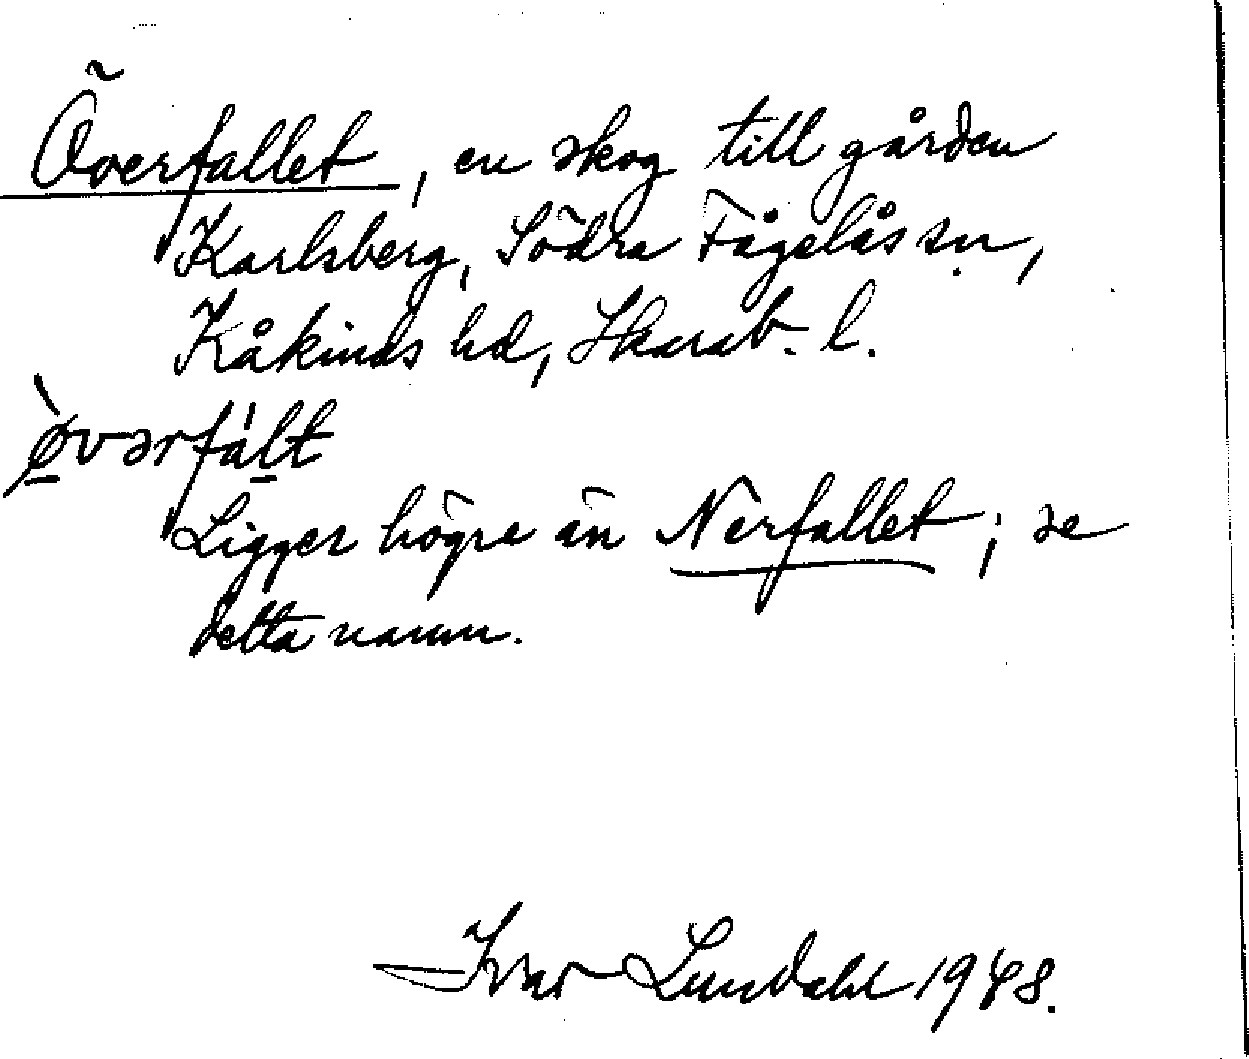 Överfallet, en skog till gården
Karlsberg, Södra Fågelås sn,
Kåkinds hd, Skarab. l.
øvərfált
Ligger högre än Nerfallet; se
detta namn.
Ivar Lundahl 1948.